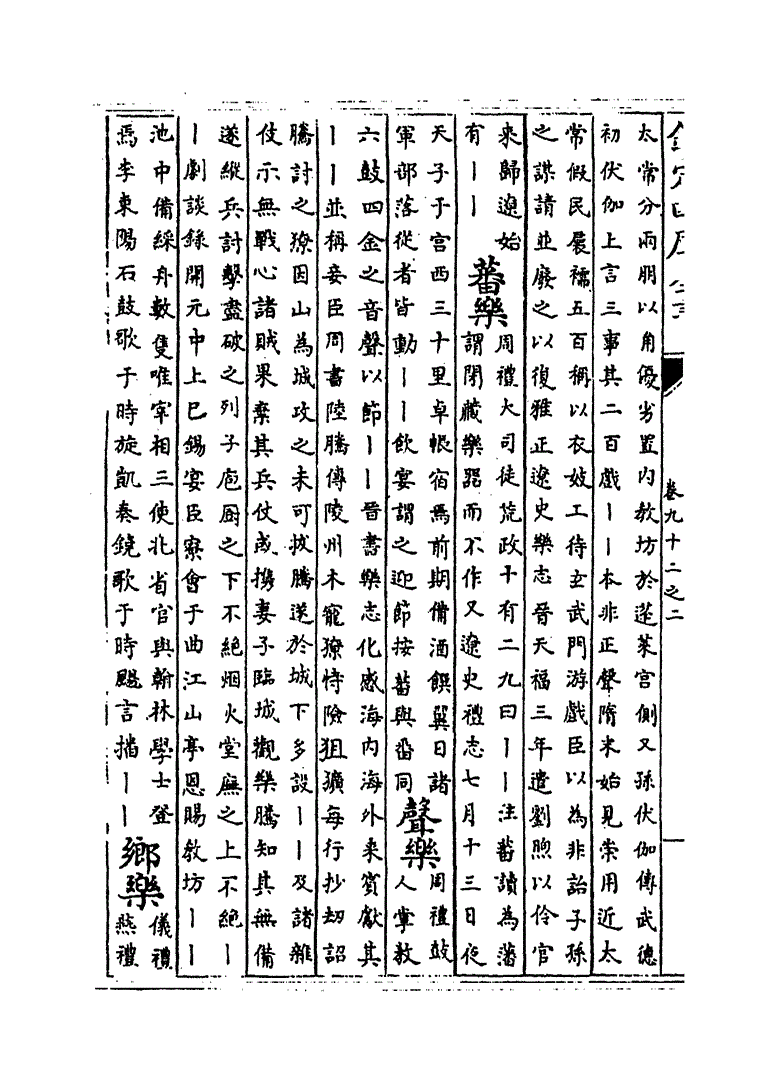 欽定四庫全書
卷九十二之二
太常分兩朋以角優劣置内教坊於蓬萊宮側又孫伏伽傳武德
初伏伽上言三事其二百戲丨丨本非正聲隋末始見崇用近太
常假民裠襦五百稱以衣妓工待玄武門游戲臣以為非詒子孫
之謀請並廢之以復雅正遼史樂志晉天福三年遣劉煦以伶官
來歸遼始
有丨丨
蕃樂
周禮大司徒荒政十有二九曰丨丨注蕃讀為藩
謂閉藏樂器而不作又遼史禮志七月十三日夜
天子于宮西三十里卓帳宿焉前期備酒饌翼日諸
軍部落從者皆動丨丨飲宴謂之迎節按蕃與番同
聲樂
周禮鼓
人掌教
六鼓四金之音聲以節丨丨晉書樂志化感海内海外來賓獻其
丨丨並稱妾臣周書陸騰傳陵州木寵獠恃險狙獷每行抄刼詔
騰討之獠因山為城攻之未可拔騰遂於城下多設丨丨及諸雜
伎示無戰心諸賊果棄其兵仗或携妻子臨城觀樂騰知其無備
遂縱兵討擊盡破之列子庖厨之下不絶烟火堂廡之上不絶丨
丨劇談錄開元中上巳錫宴臣寮會于曲江山亭恩賜教坊丨丨
池中備綵舟數隻唯宰相三使北省官與翰林學士登
焉李東陽石鼓歌于時旋凱奏鐃歌于時颺言丨丨
鄉樂
儀禮
燕禮